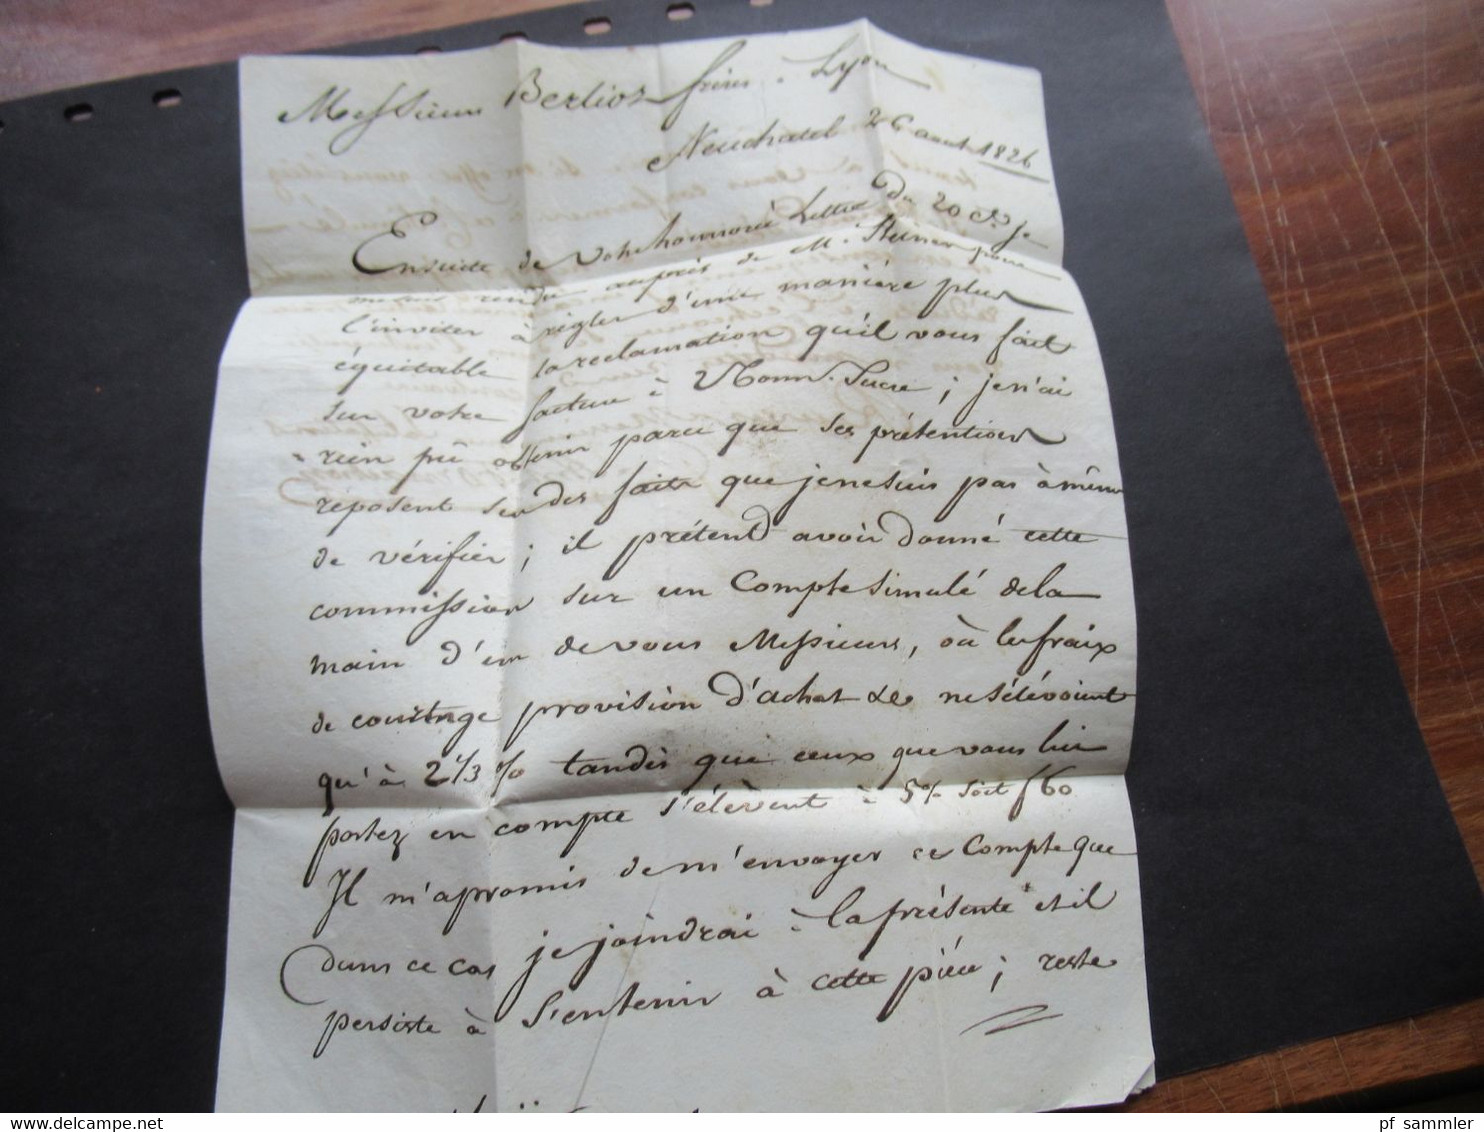 Messieurs Berlioz frères. Lyon
Neuchatel 26 aout 1826
Ensuite de votre honnorée Lettre du 20 ct. je
me suis rendu auprès de M. Reiner pour
l'inviter à règler d'une manière plus
équitable la reclamation qu'il vous fait
sur votre facture à Monsr. Sucre ; je n'ai
rien pû obtenir parce que ses prétentions
reposent sur des faits que je ne suis pas à même
de vérifier ; il prétend avoir donné cette
commission sur un Compte simulé de la
main d'un de vous Messieurs, où les fraix
de courtage provision d'achat &c ne s'élévoient
qu'à 2 1/3 % tandis que ceux que vous lui
portez en compte s'élèvent à 5% soit f 60
Il m'a promis de m'envoyer ce Compte que
dans ce cas je joindrai à la présente et il
persiste à s'entenir à cette pièce ; reste
PostalHistory (c)
pf_sammler